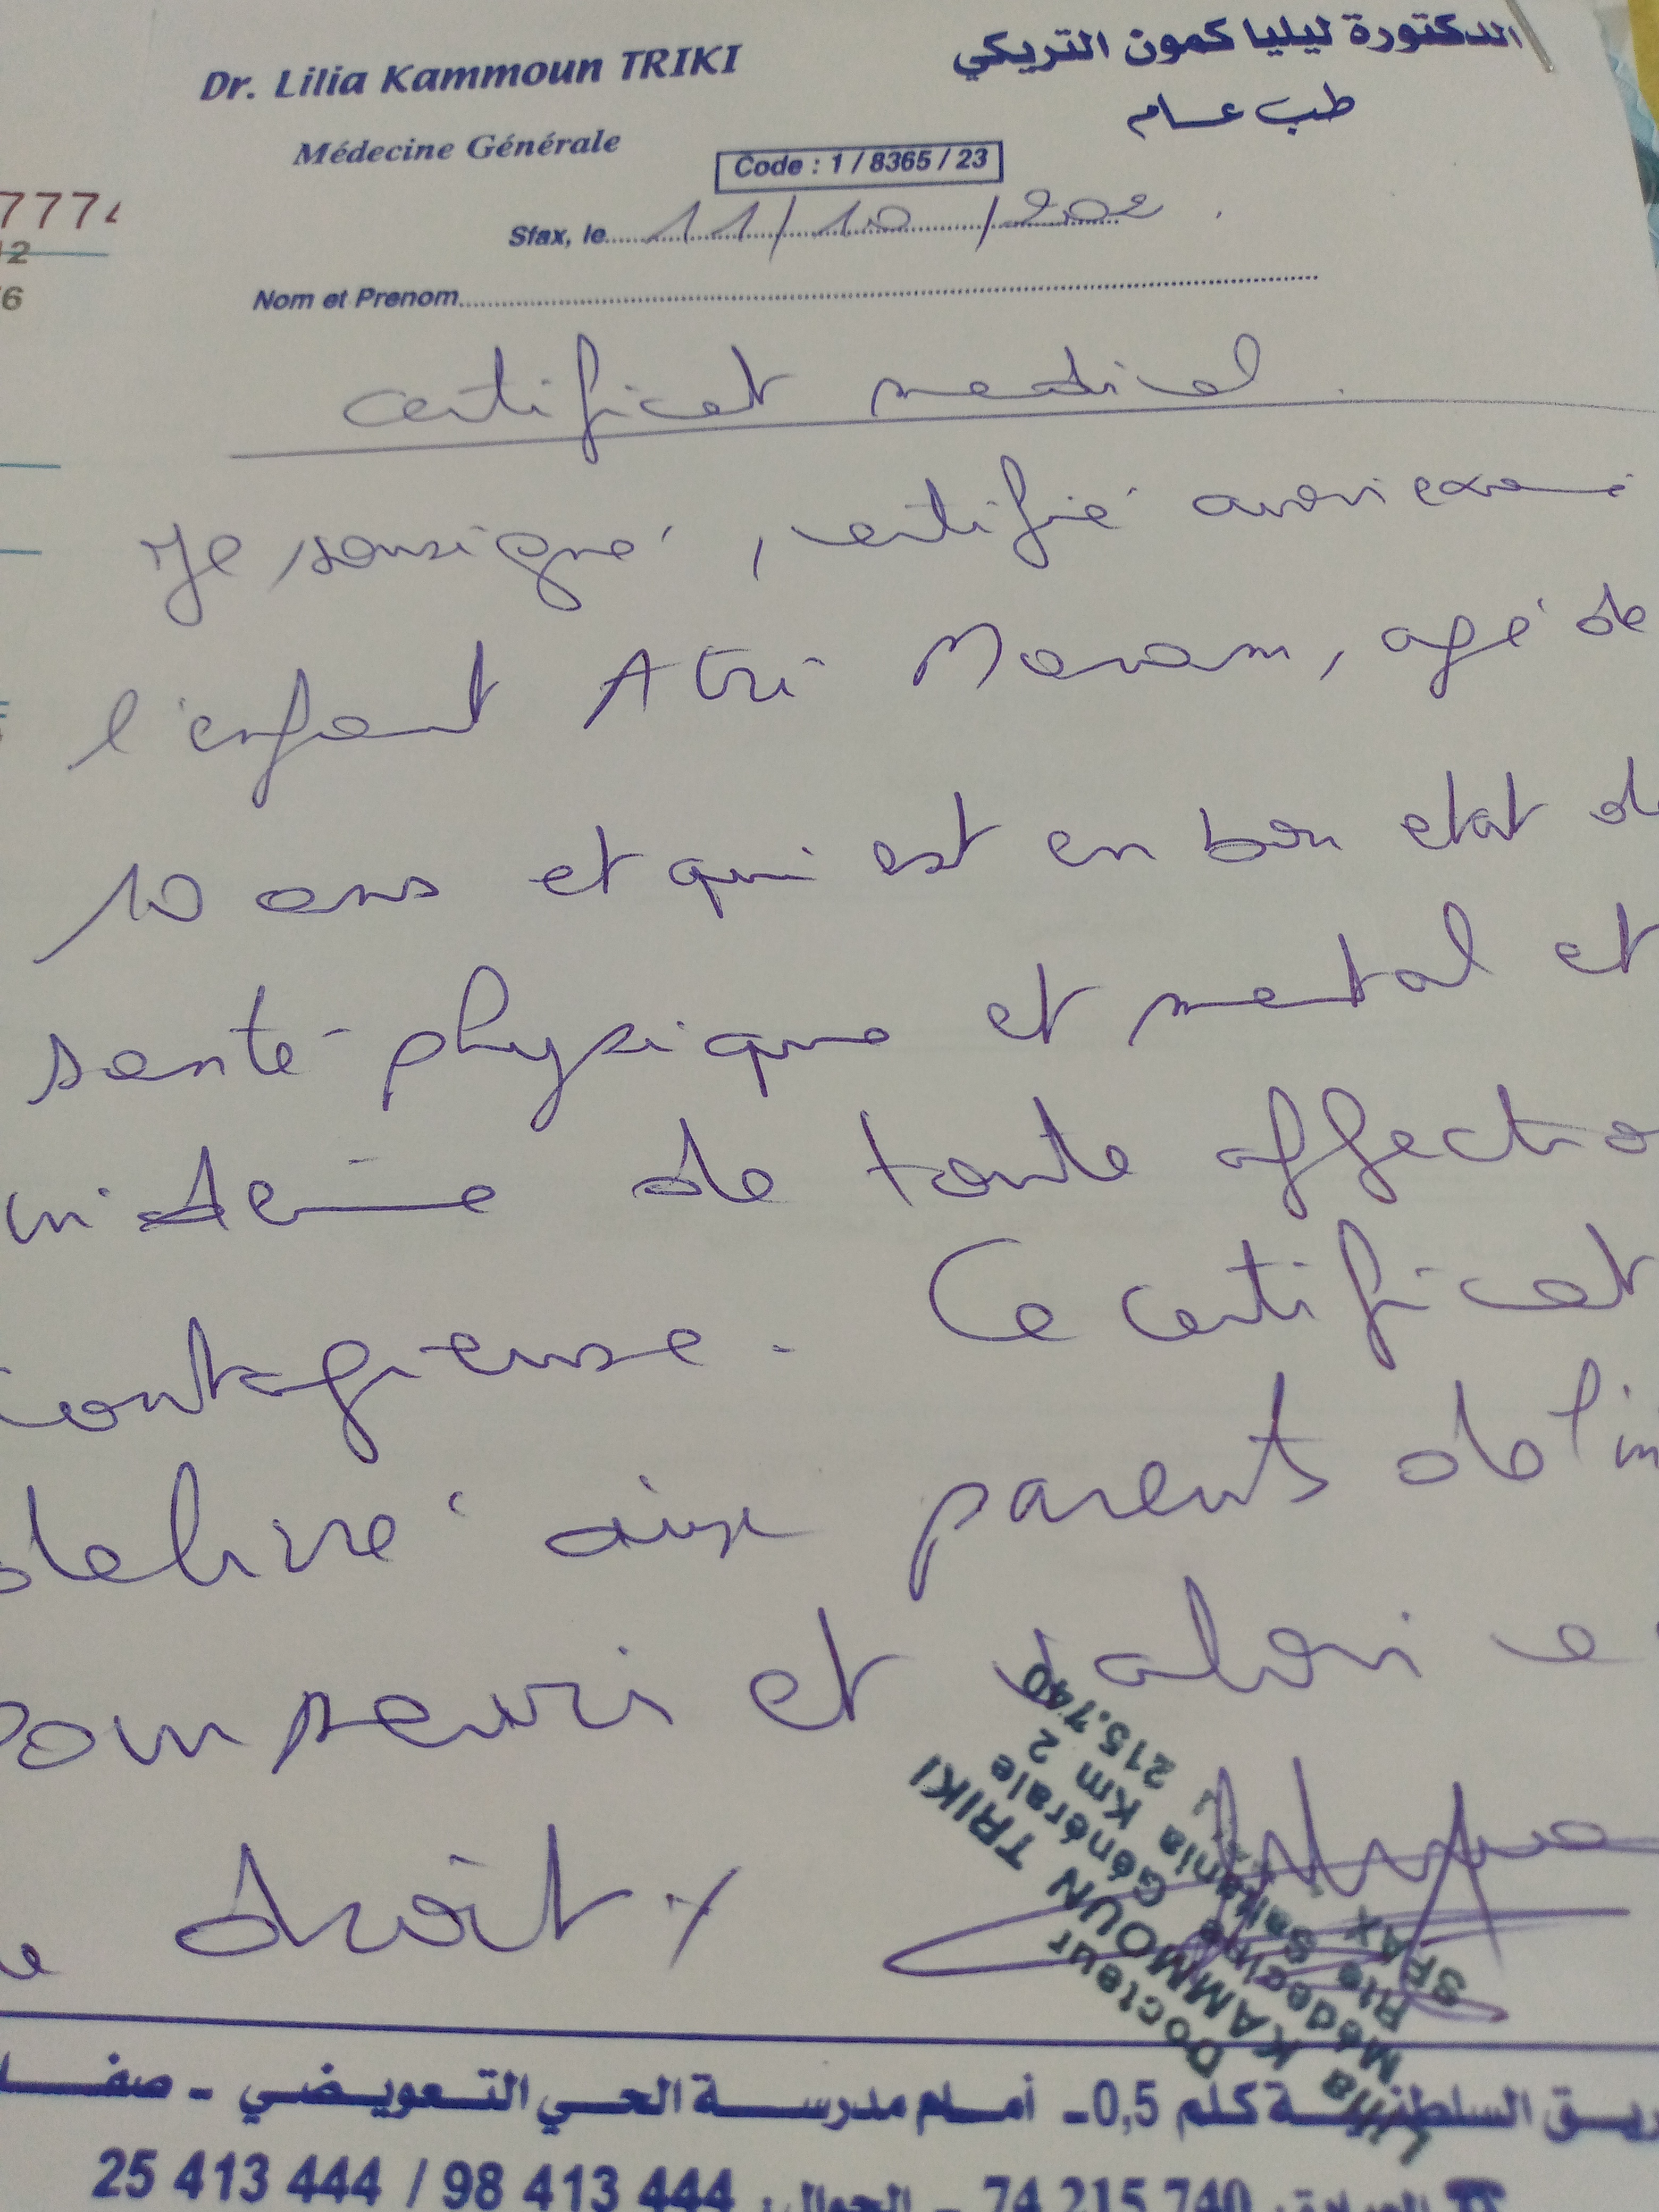 Dr. Lilia Kammoun TRIKI
الدكتورة ليليا كمون التريكي
Médecine Générale
طب عام
Code : 1 / 8365 / 23
7774
Sfax, le 11/10/202
Nom et Prenom
certificat medical.
Je sousigné, certifié avoir exami
l'enfant Atri Maram, agé de
10 ans et qui est en bon etat de
santé physique et mental et
indemne de toute affectio
contagieuse. Ce certificat
delivré aux parents de l'in
pour servir et valoir ce
droit
Docteur
Lilia KAMMOUN TRIKI
Médecine Générale
Rte Saltania Km 2
SFAX 215.740
ريق السلطنية كلم 0,5 - أمام مدرسة الحي التعويضي - صفا
74 215 740 - الجوال: 98 413 444 / 25 413 444